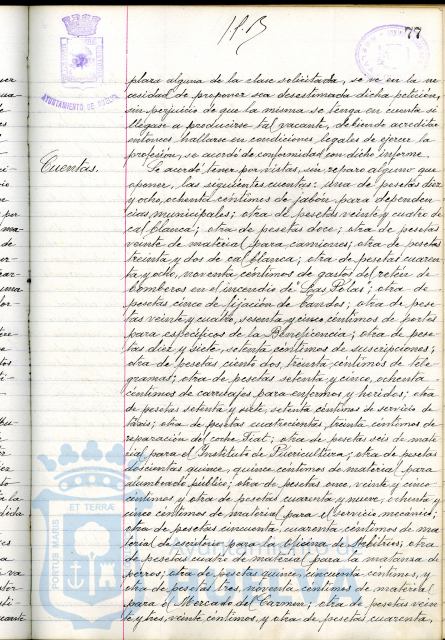 77
AYUNTAMIENTO DE HUELVA
plaza alguna de la clase solicitada, se ve en la ne
cesidad de proponer sea desestimada dicha petición,
sin perjuicio de que la misma se tenga en cuenta si
llegase a producirse tal vacante, debiendo acreditar
entonces hallarse en condiciones legales de ejercer la
profesión, se acordó de conformidad con dicho informe.
Cuentas.
Se acordó tener por vistas, sin reparo alguno que
oponer, las siguientes cuentas: una de pesetas diez
y ocho, ochenta céntimos de jabón para dependen
cias municipales; otra de pesetas veinte y cuatro de
cal blanca; otra de pesetas doce; otra de pesetas
veinte de material para camiones; otra de pesetas
treinta y dos de cal blanca; otra de pesetas cuaren
ta y ocho, noventa céntimos de gastos del retén de
bomberos en el incendio de "Las Polas"; otra de
pesetas cinco de fijación de bandos; otra de pese
tas veinte y cuatro, sesenta y cinco céntimos de portes
para específicos de la Beneficencia; otra de pese
tas diez y siete, setenta céntimos de suscripciones;
otra de pesetas ciento dos, treinta céntimos de tele
gramas; otra de pesetas setenta y cinco, ochenta
céntimos de carruajes para enfermos y heridos; otra
de pesetas setenta y siete, setenta céntimos de servicio de
taxis; otra de pesetas cuatrocientas, treinta céntimos de
reparación del coche Fiat; otra de pesetas seis de mate
rial para el Instituto de Puericultura; otra de pesetas
doscientas quince, quince céntimos de material para
alumbrado público; otra de pesetas once, veinte y cinco
céntimos y otra de pesetas cuarenta y nueve, ochenta y
cinco céntimos de material para el servicio mecánico;
otra de pesetas cincuenta, cuarenta céntimos de ma
terial de escritorio para la oficina de Arbitrios; otra
de pesetas cuatro de material para la matanza de
perros; otra de pesetas quince, cincuenta céntimos, y
otra de pesetas tres, noventa céntimos de material
para el Mercado del Carmen; otra de pesetas vein
te y tres, veinte céntimos, otra de pesetas cuarenta,
PORTUS MARIS ET TERRAE
Ayuntamiento de